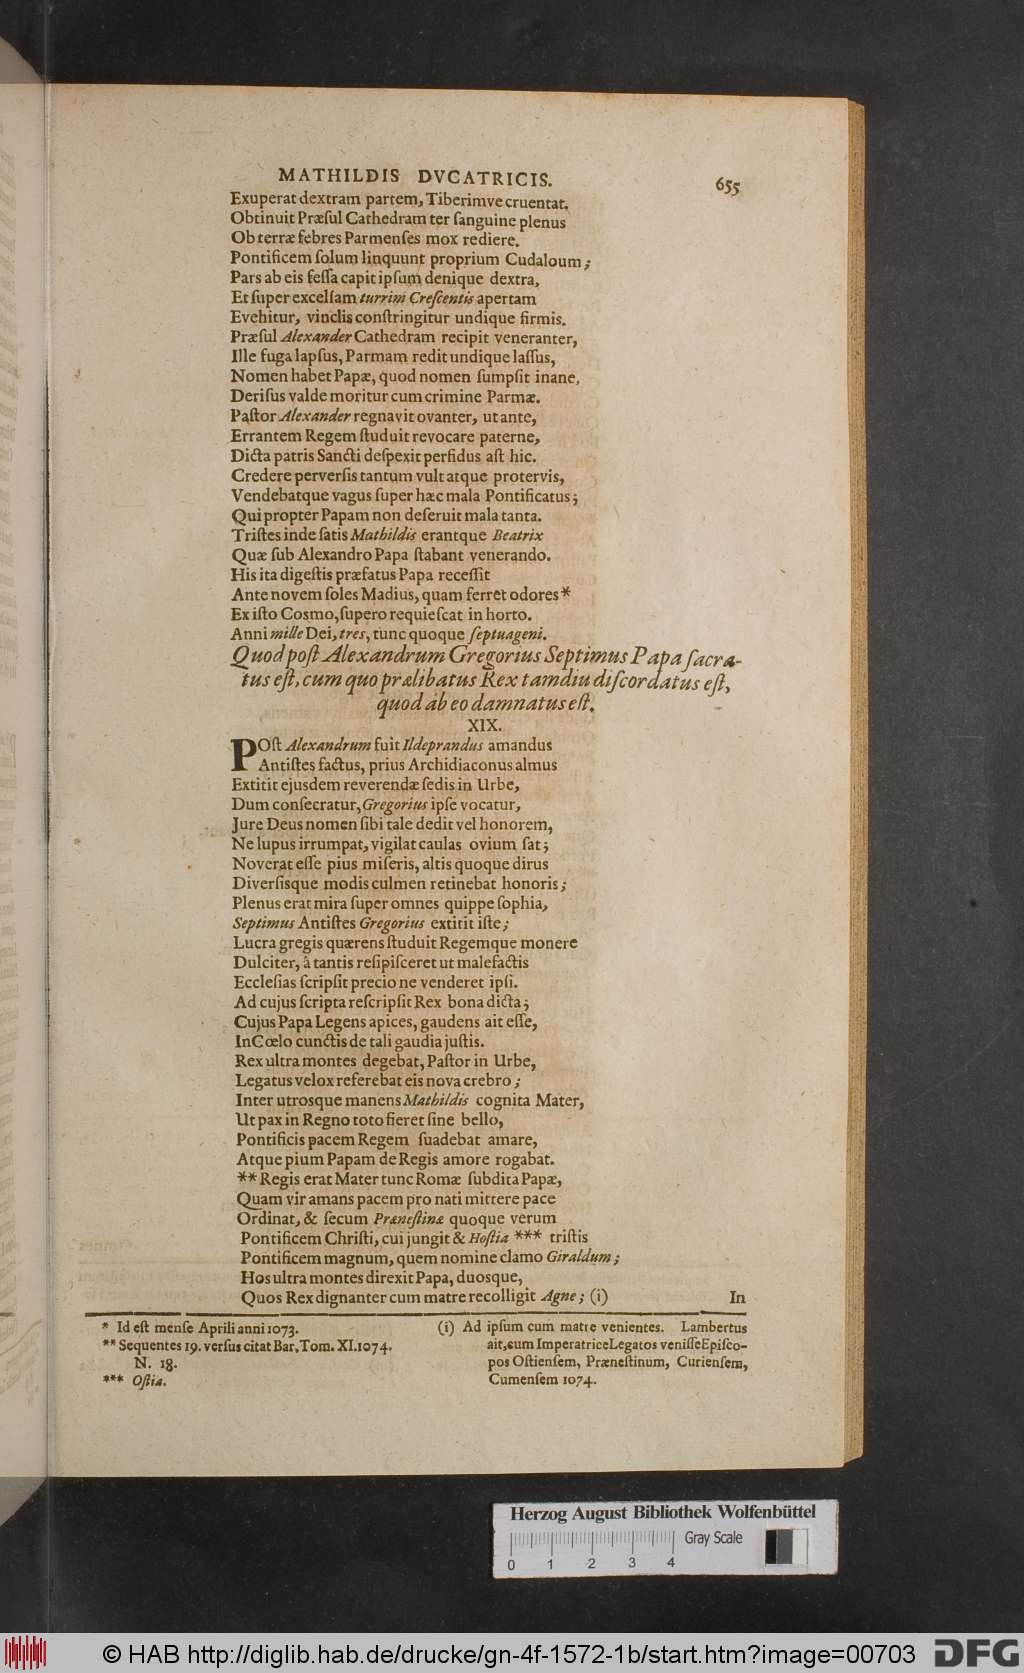 MATHILDIS DVCATRICIS. 655
Exuperat dextram partem, Tiberimve cruentat.
Obtinuit Præsul Cathedram ter sanguine plenus
Ob terræ febres Parmenses mox rediere.
Pontificem solum linquunt proprium Cudaloum;
Pars ab eis fessa capit ipsum denique dextra,
Et super excelsam turrim Crescentis apertam
Evehitur, vinclis constringitur undique firmis.
Præsul Alexander Cathedram recipit veneranter,
Ille fuga lapsus, Parmam redit undique lassus,
Nomen habet Papæ, quod nomen sumpsit inane,
Derisus valde moritur cum crimine Parmæ.
Pastor Alexander regnavit ovanter, ut ante,
Errantem Regem studuit revocare paterne,
Dicta patris Sancti despexit perfidus ast hic.
Credere perversis tantum vult atque protervis,
Vendebatque vagus super hæc mala Pontificatus;
Qui propter Papam non deseruit mala tanta.
Tristes inde satis Mathildis erantque Beatrix
Quæ sub Alexandro Papa stabant venerando.
His ita digestis præfatus Papa recessit
Ante novem soles Madius, quam ferret odores*
Ex isto Cosmo, supero requiescat in horto.
Anni mille Dei, tres, tunc quoque septuageni.
Quod post Alexandrum Gregorius Septimus Papa sacra-
tus est, cum quo prælibatus Rex tamdiu discordatus est,
quod ab eo damnatus est.
XIX.
POst Alexandrum fuit Ildeprandus amandus
Antistes factus, prius Archidiaconus almus
Extitit ejusdem reverendæ sedis in Urbe,
Dum consecratur, Gregorius ipse vocatur,
Jure Deus nomen sibi tale dedit vel honorem,
Ne lupus irrumpat, vigilat caulas ovium sat;
Noverat esse pius miseris, altis quoque dirus
Diversisque modis culmen retinebat honoris;
Plenus erat mira super omnes quippe sophia,
Septimus Antistes Gregorius extitit iste;
Lucra gregis quærens studuit Regemque monere
Dulciter, à tantis resipisceret ut malefactis
Ecclesias scripsit precio ne venderet ipsi.
Ad cujus scripta rescripsit Rex bona dicta;
Cujus Papa Legens apices, gaudens ait esse,
In Cœlo cunctis de tali gaudia justis.
Rex ultra montes degebat, Pastor in Urbe,
Legatus velox referebat eis nova crebro;
Inter utrosque manens Mathildis cognita Mater,
Ut pax in Regno toto fieret sine bello,
Pontificis pacem Regem suadebat amare,
Atque pium Papam de Regis amore rogabat.
** Regis erat Mater tunc Romæ subdita Papæ,
Quam vir amans pacem pro nati mittere pace
Ordinat, & secum Prænestinæ quoque verum
Pontificem Christi, cui jungit & Hostia *** tristis
Pontificem magnum, quem nomine clamo Giraldum;
Hos ultra montes direxit Papa, duosque,
Quos Rex dignanter cum matre recolligit Agne; (i)
In
* Id est mense Aprili anni 1073.
** Sequentes 19. versus citat Bar. Tom. XI. 1074.
N. 18.
*** Ostia.
(i) Ad ipsum cum matre venientes. Lambertus
ait, cum Imperatrice Legatos venisse Episco-
pos Ostiensem, Prænestinum, Curiensem,
Cumensem 1074.
Herzog August Bibliothek Wolfenbüttel
Gray Scale
0 1 2 3 4
© HAB http://diglib.hab.de/drucke/gn-4f-1572-1b/start.htm?image=00703
DFG